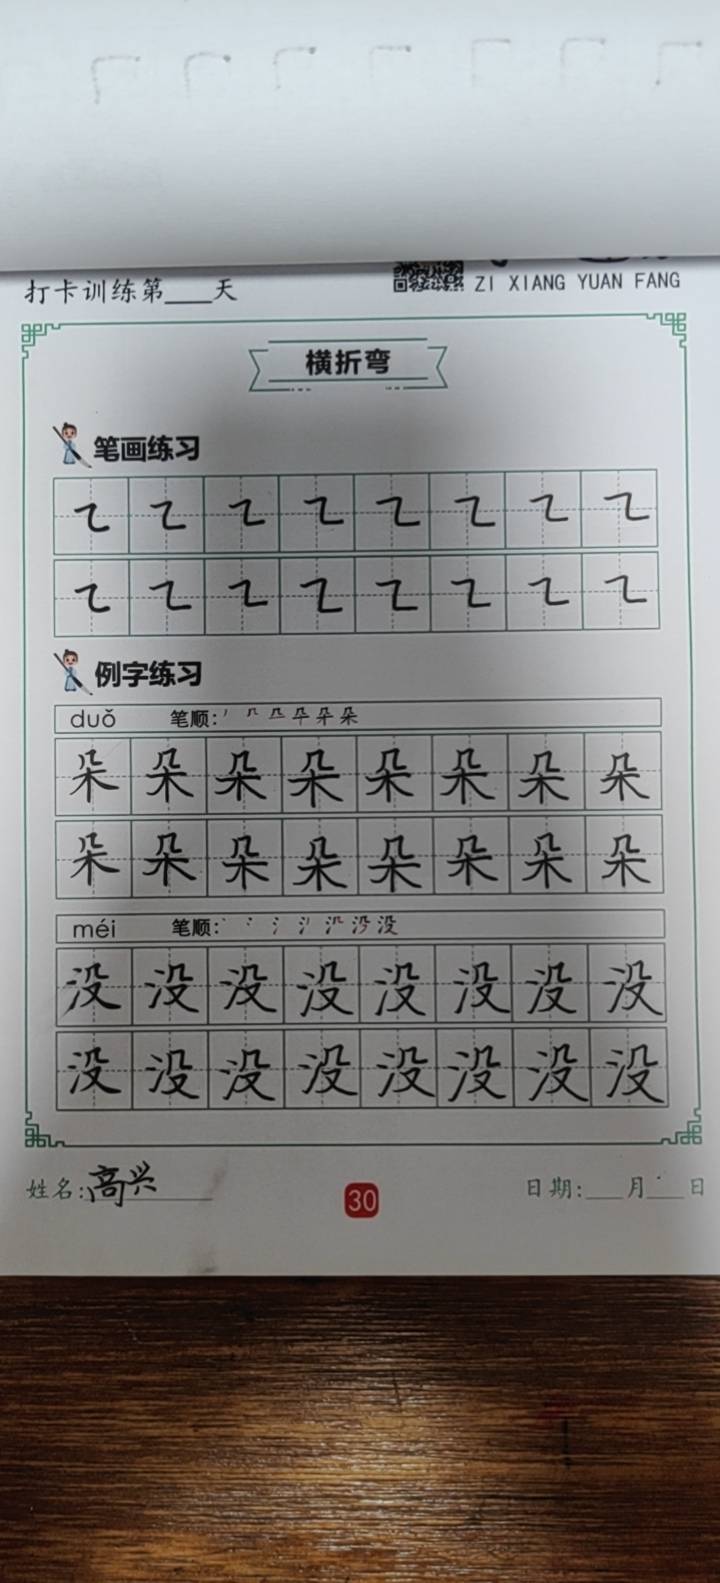 打卡训练第____天
ZI XIANG YUAN FANG
横折弯
笔画练习
例字练习
duǒ 笔顺:
朵朵朵朵朵朵朵朵
朵朵朵朵朵朵朵朵
méi 笔顺:
没没没没没没没没
没没没没没没没没
姓名:高兴
30
日期:___月___日